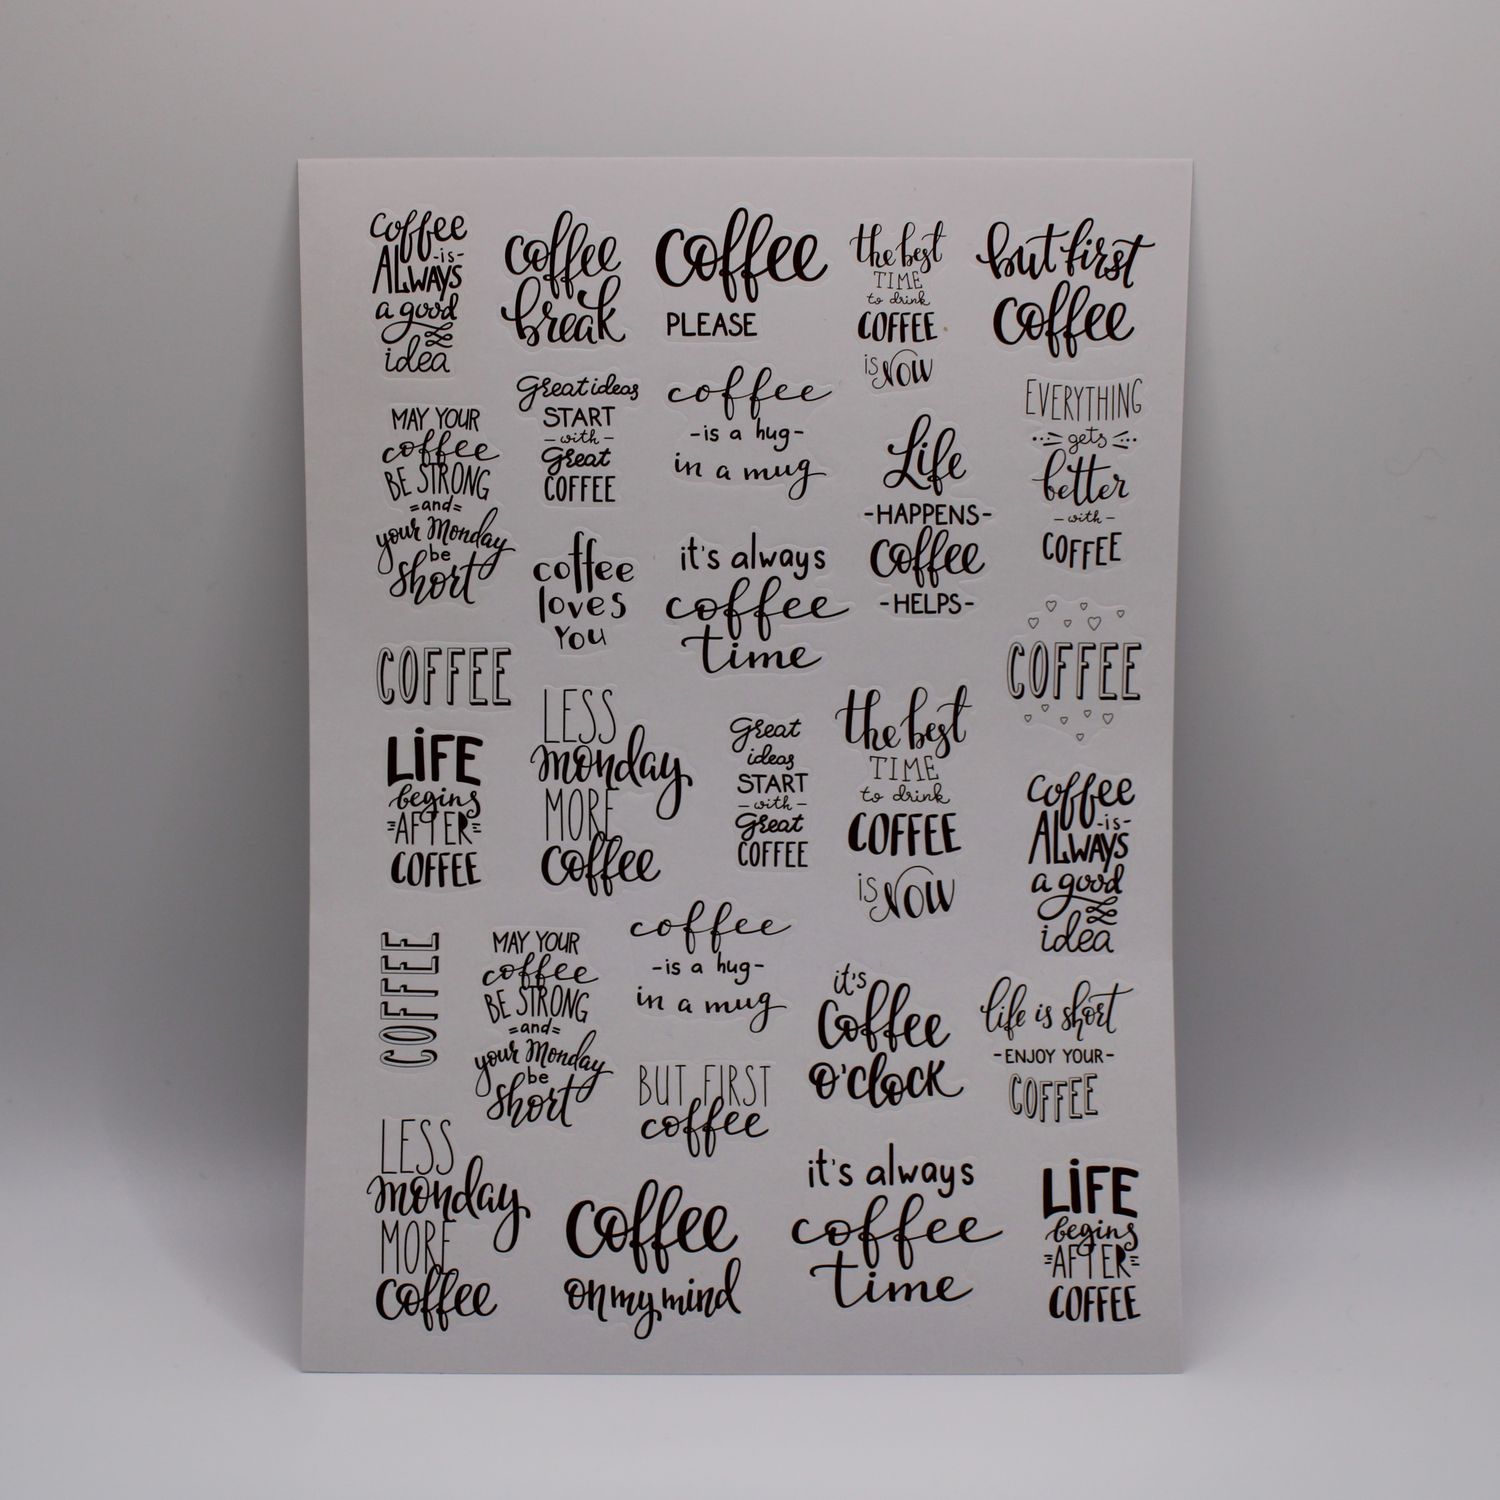 coffee
-is-
ALWAYS
a good
idea
coffee
break
coffee
PLEASE
the best
TIME
to drink
COFFEE
is NOW
but first
coffee
MAY YOUR
coffee
BE STRONG
=and=
your Monday
be
short
Great ideas
START
-with-
Great
COFFEE
coffee
-is a hug-
in a mug
Life
-HAPPENS-
coffee
-HELPS-
EVERYTHING
gets
better
-with-
COFFEE
coffee
loves
YOU
it's always
coffee
time
COFFEE
COFFEE
LiFE
begins
=AFTER=
COFFEE
LESS
monday
MORE
coffee
Great
ideas
START
-with-
Great
COFFEE
the best
TIME
to drink
COFFEE
is NOW
coffee
-is-
ALWAYS
a good
idea
COFFEE
MAY YOUR
coffee
BE STRONG
=and=
your Monday
be
short
coffee
-is a hug-
in a mug
it's
coffee
o'clock
life is short
-ENJOY YOUR-
COFFEE
BUT FIRST
coffee
LESS
monday
MORE
coffee
coffee
on my mind
it's always
coffee
time
LiFE
begins
=AFTER=
COFFEE